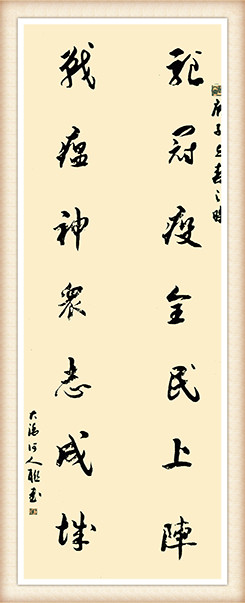 庚子立春之時
冠疫全民上陣
戰瘟神衆志成城
大渡河人